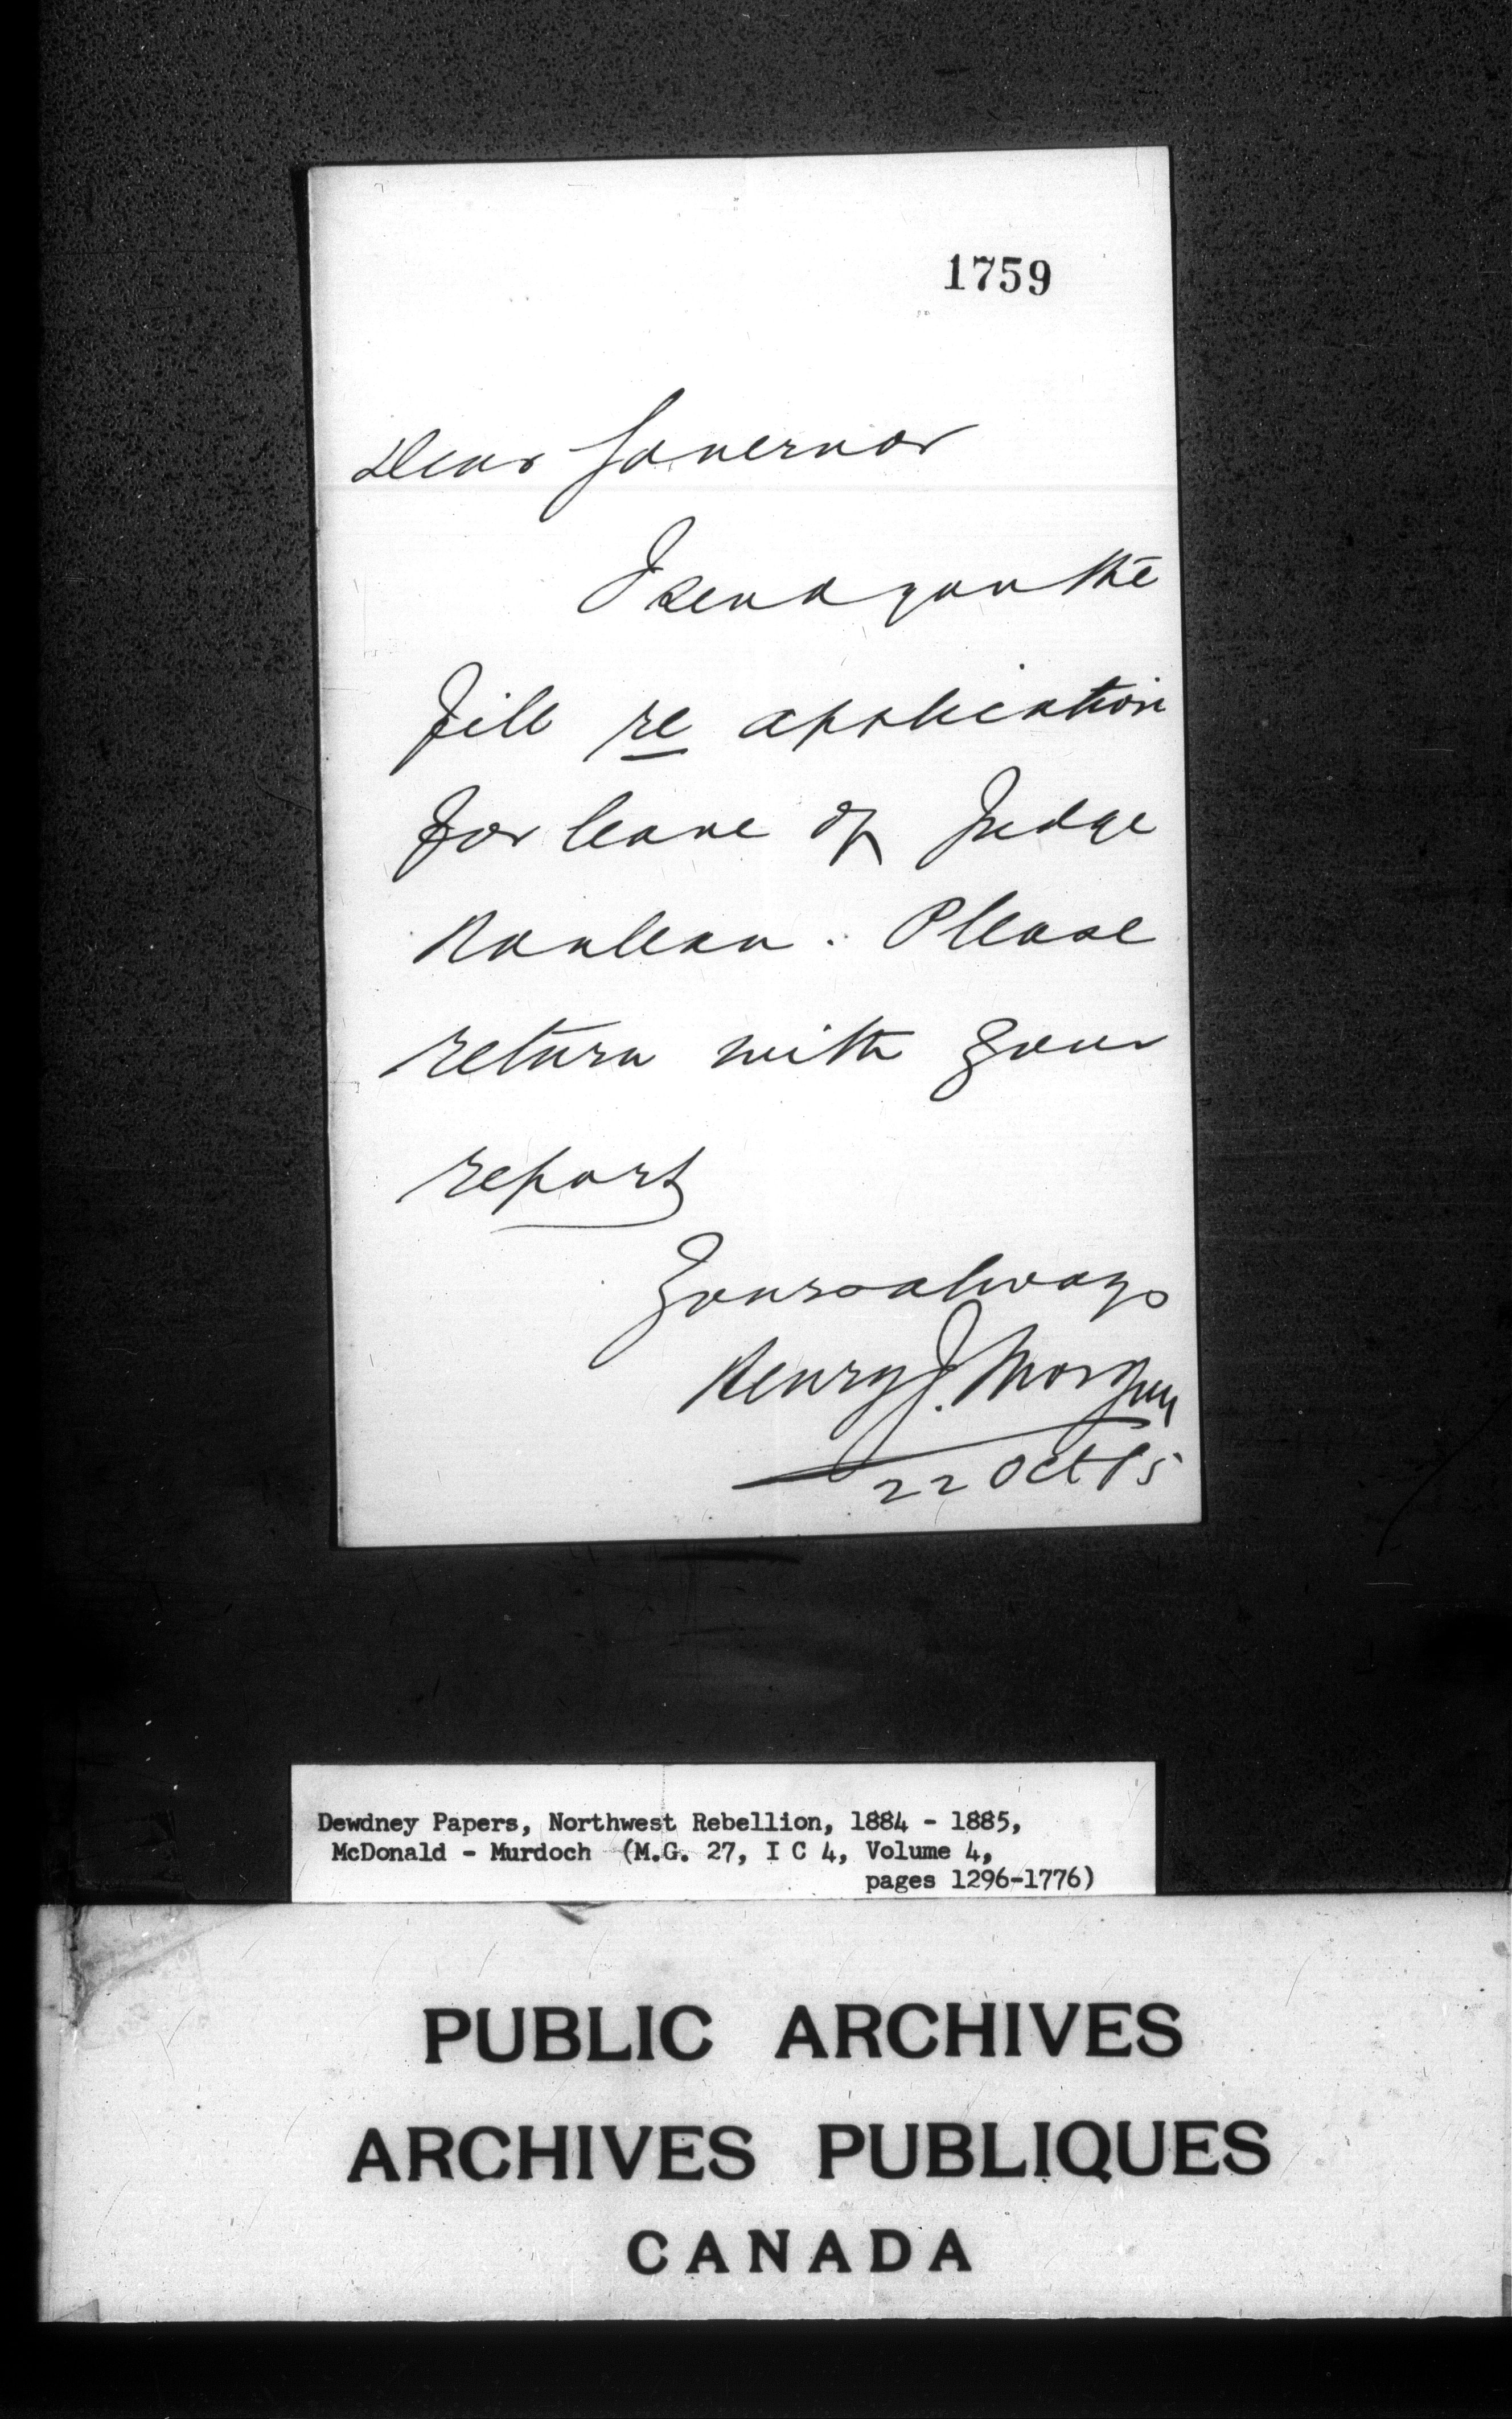 1759
Dear Governor
I send you the
file re application
for leave of Judge
Rouleau. Please
return with your
report
Yours always
Henry J. Morgan
22 Oct 85
Dewdney Papers, Northwest Rebellion, 1884 - 1885,
McDonald - Murdoch (M.G. 27, I C 4, Volume 4,
pages 1296-1776)
PUBLIC ARCHIVES
ARCHIVES PUBLIQUES
CANADA